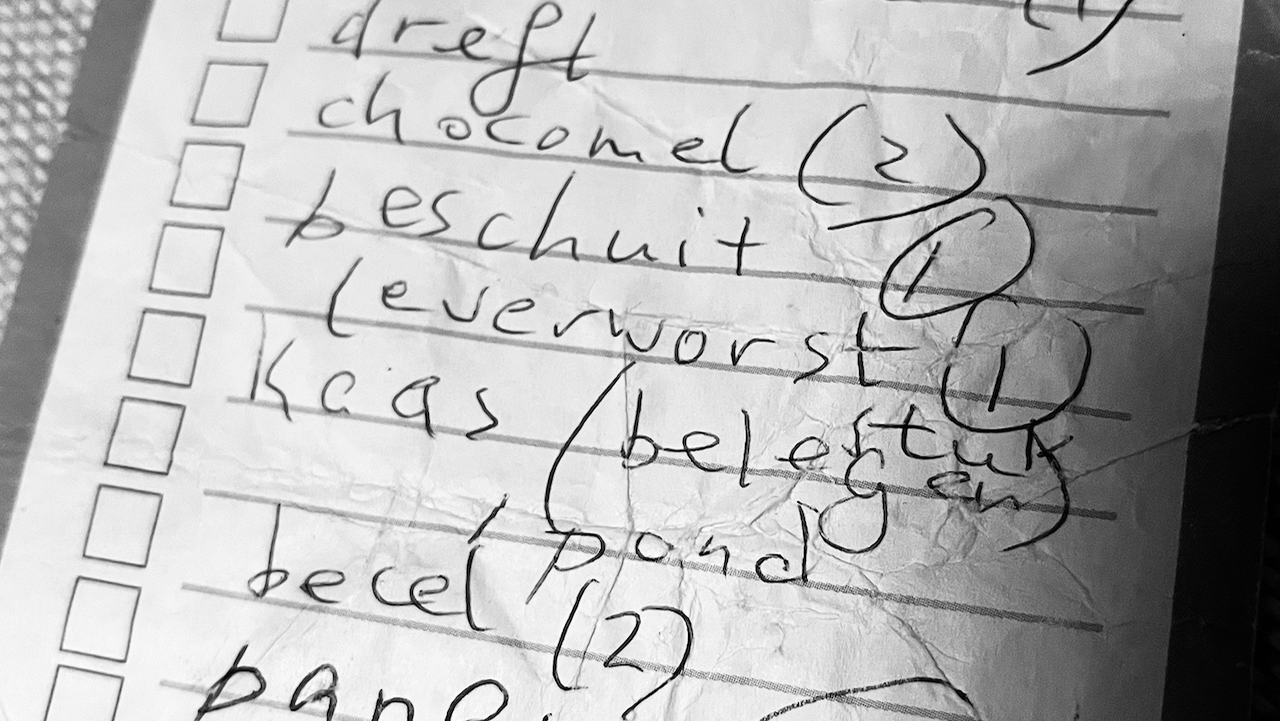 (1)
dreft
chocomel (2)
beschuit (1)
leverworst (1)
Kaas (belegen) stuk
pond
becel (2)